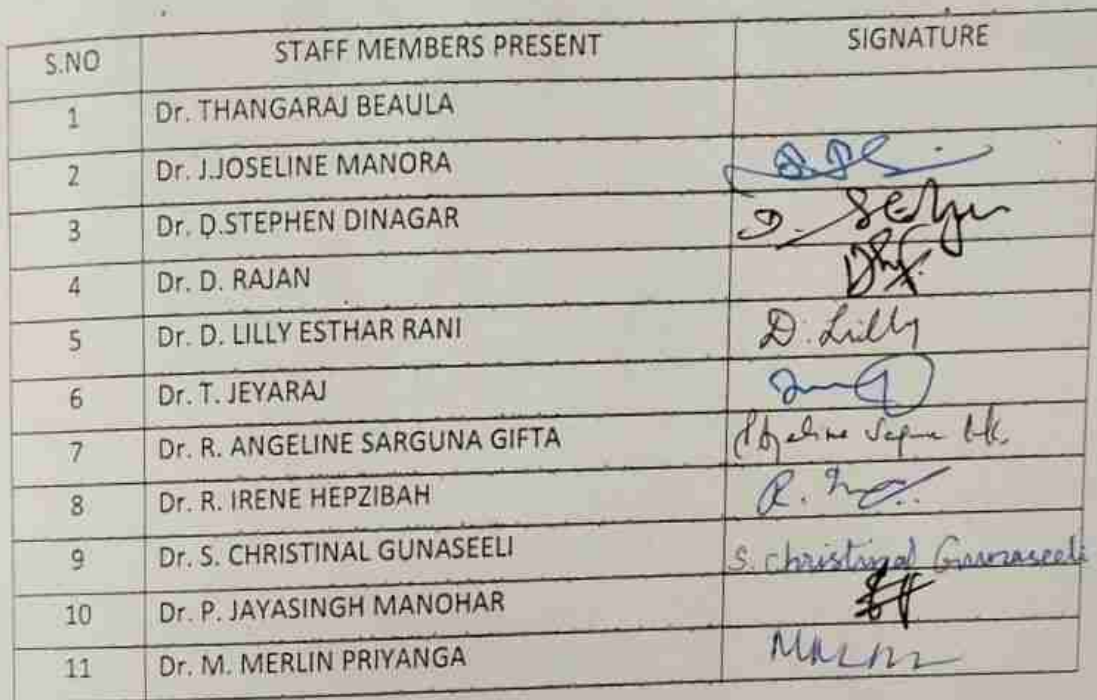 S.NO STAFF MEMBERS PRESENT SIGNATURE
1 Dr. THANGARAJ BEAULA
2 Dr. J.JOSELINE MANORA
3 Dr. D.STEPHEN DINAGAR
4 Dr. D. RAJAN
5 Dr. D. LILLY ESTHAR RANI D. Lilly
6 Dr. T. JEYARAJ
7 Dr. R. ANGELINE SARGUNA GIFTA
8 Dr. R. IRENE HEPZIBAH R.
9 Dr. S. CHRISTINAL GUNASEELI S. Christinal Gunaseeli
10 Dr. P. JAYASINGH MANOHAR
11 Dr. M. MERLIN PRIYANGA